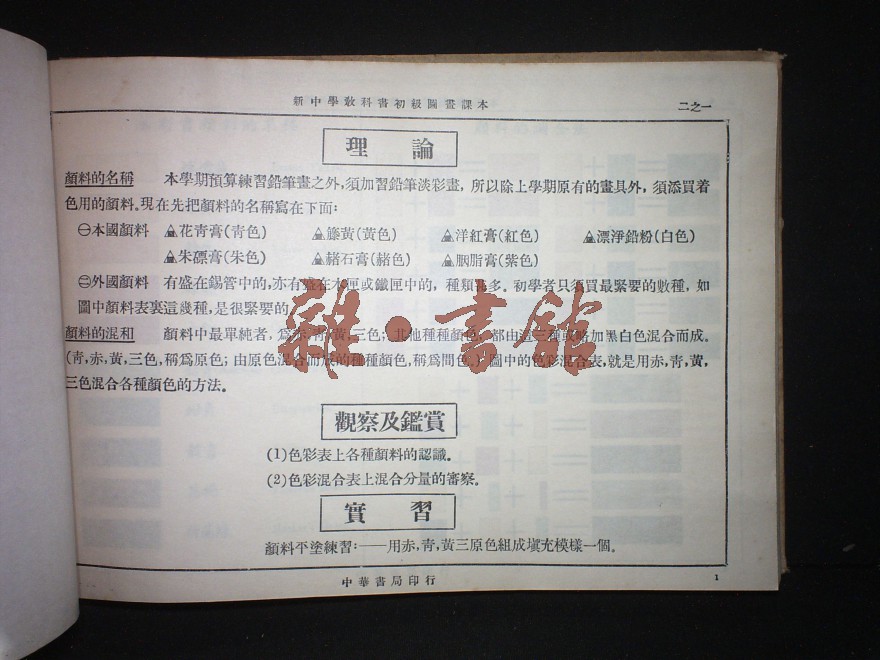 新中學教科書初級圖畫課本 二之一
理論
顏料的名稱 本學期預算練習鉛筆畫之外,須加習鉛筆淡彩畫,所以除上學期原有的畫具外,須添買着
色用的顏料。現在先把顏料的名稱寫在下面:
㊀本國顏料 花青膏(青色) 籐黃(黃色) 洋紅膏(紅色) 漂淨鉛粉(白色)
朱磦膏(朱色) 赭石膏(赭色) 胭脂膏(紫色)
㊁外國顏料 有盛在錫管中的,亦有盛在木匣或鐵匣中的,種類甚多。初學者只須買最緊要的數種,如
圖中顏料表裏這幾種,是很緊要的
顏料的混和 顏料中最單純者,爲赤,青,黃,三色;其他種種顏色,都由這三種或略加黑白色混合而成。
(青,赤,黃,三色,稱爲原色;由原色混合而成的種種顏色,稱爲間色。)圖中的色彩混合表,就是用赤,青,黃,
三色混合各種顏色的方法。
觀察及鑑賞
(1)色彩表上各種顏料的認識。
(2)色彩混合表上混合分量的審察。
實習
顏料平塗練習:——用赤,青,黃三原色組成塡充模樣一個。
中華書局印行 1
雜·書館